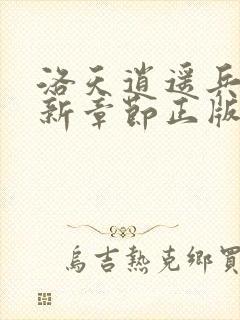 洛天逍遥兵
新章節正版
烏吉熱克鄉買